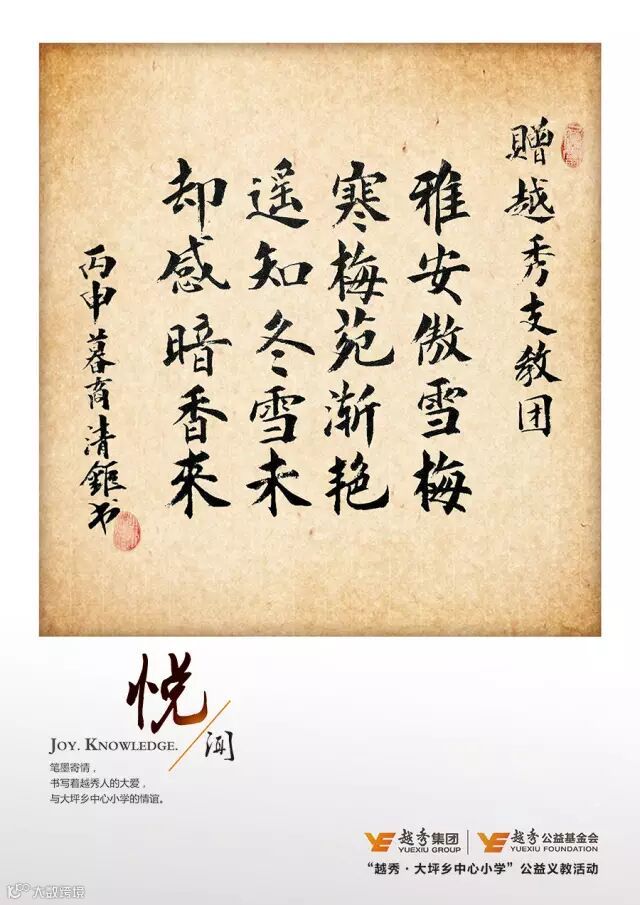 贈越秀支教团
雅安傲雪梅
寒梅苑渐艳
遥知冬雪未
却感暗香來
丙申暮商清鉅书
悦
闻
JOY. KNOWLEDGE.
笔墨寄情，
书写着越秀人的大爱，
与大坪乡中心小学的情谊。
越秀集团
YUEXIU GROUP
越秀公益基金会
YUEXIU FOUNDATION
“越秀·大坪乡中心小学”公益义教活动
大数跨境